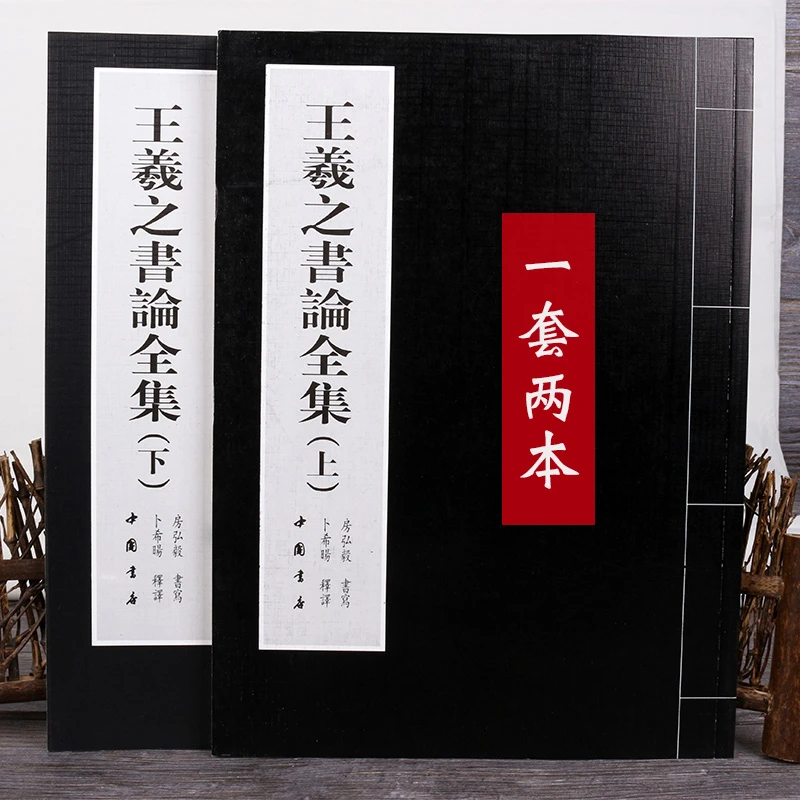 王羲之書論全集(上)
房弘毅 書寫
卜希暘 釋譯
中國書店
一套两本
王羲之書論全集(下)
房弘毅 書寫
卜希暘 釋譯
中國書店